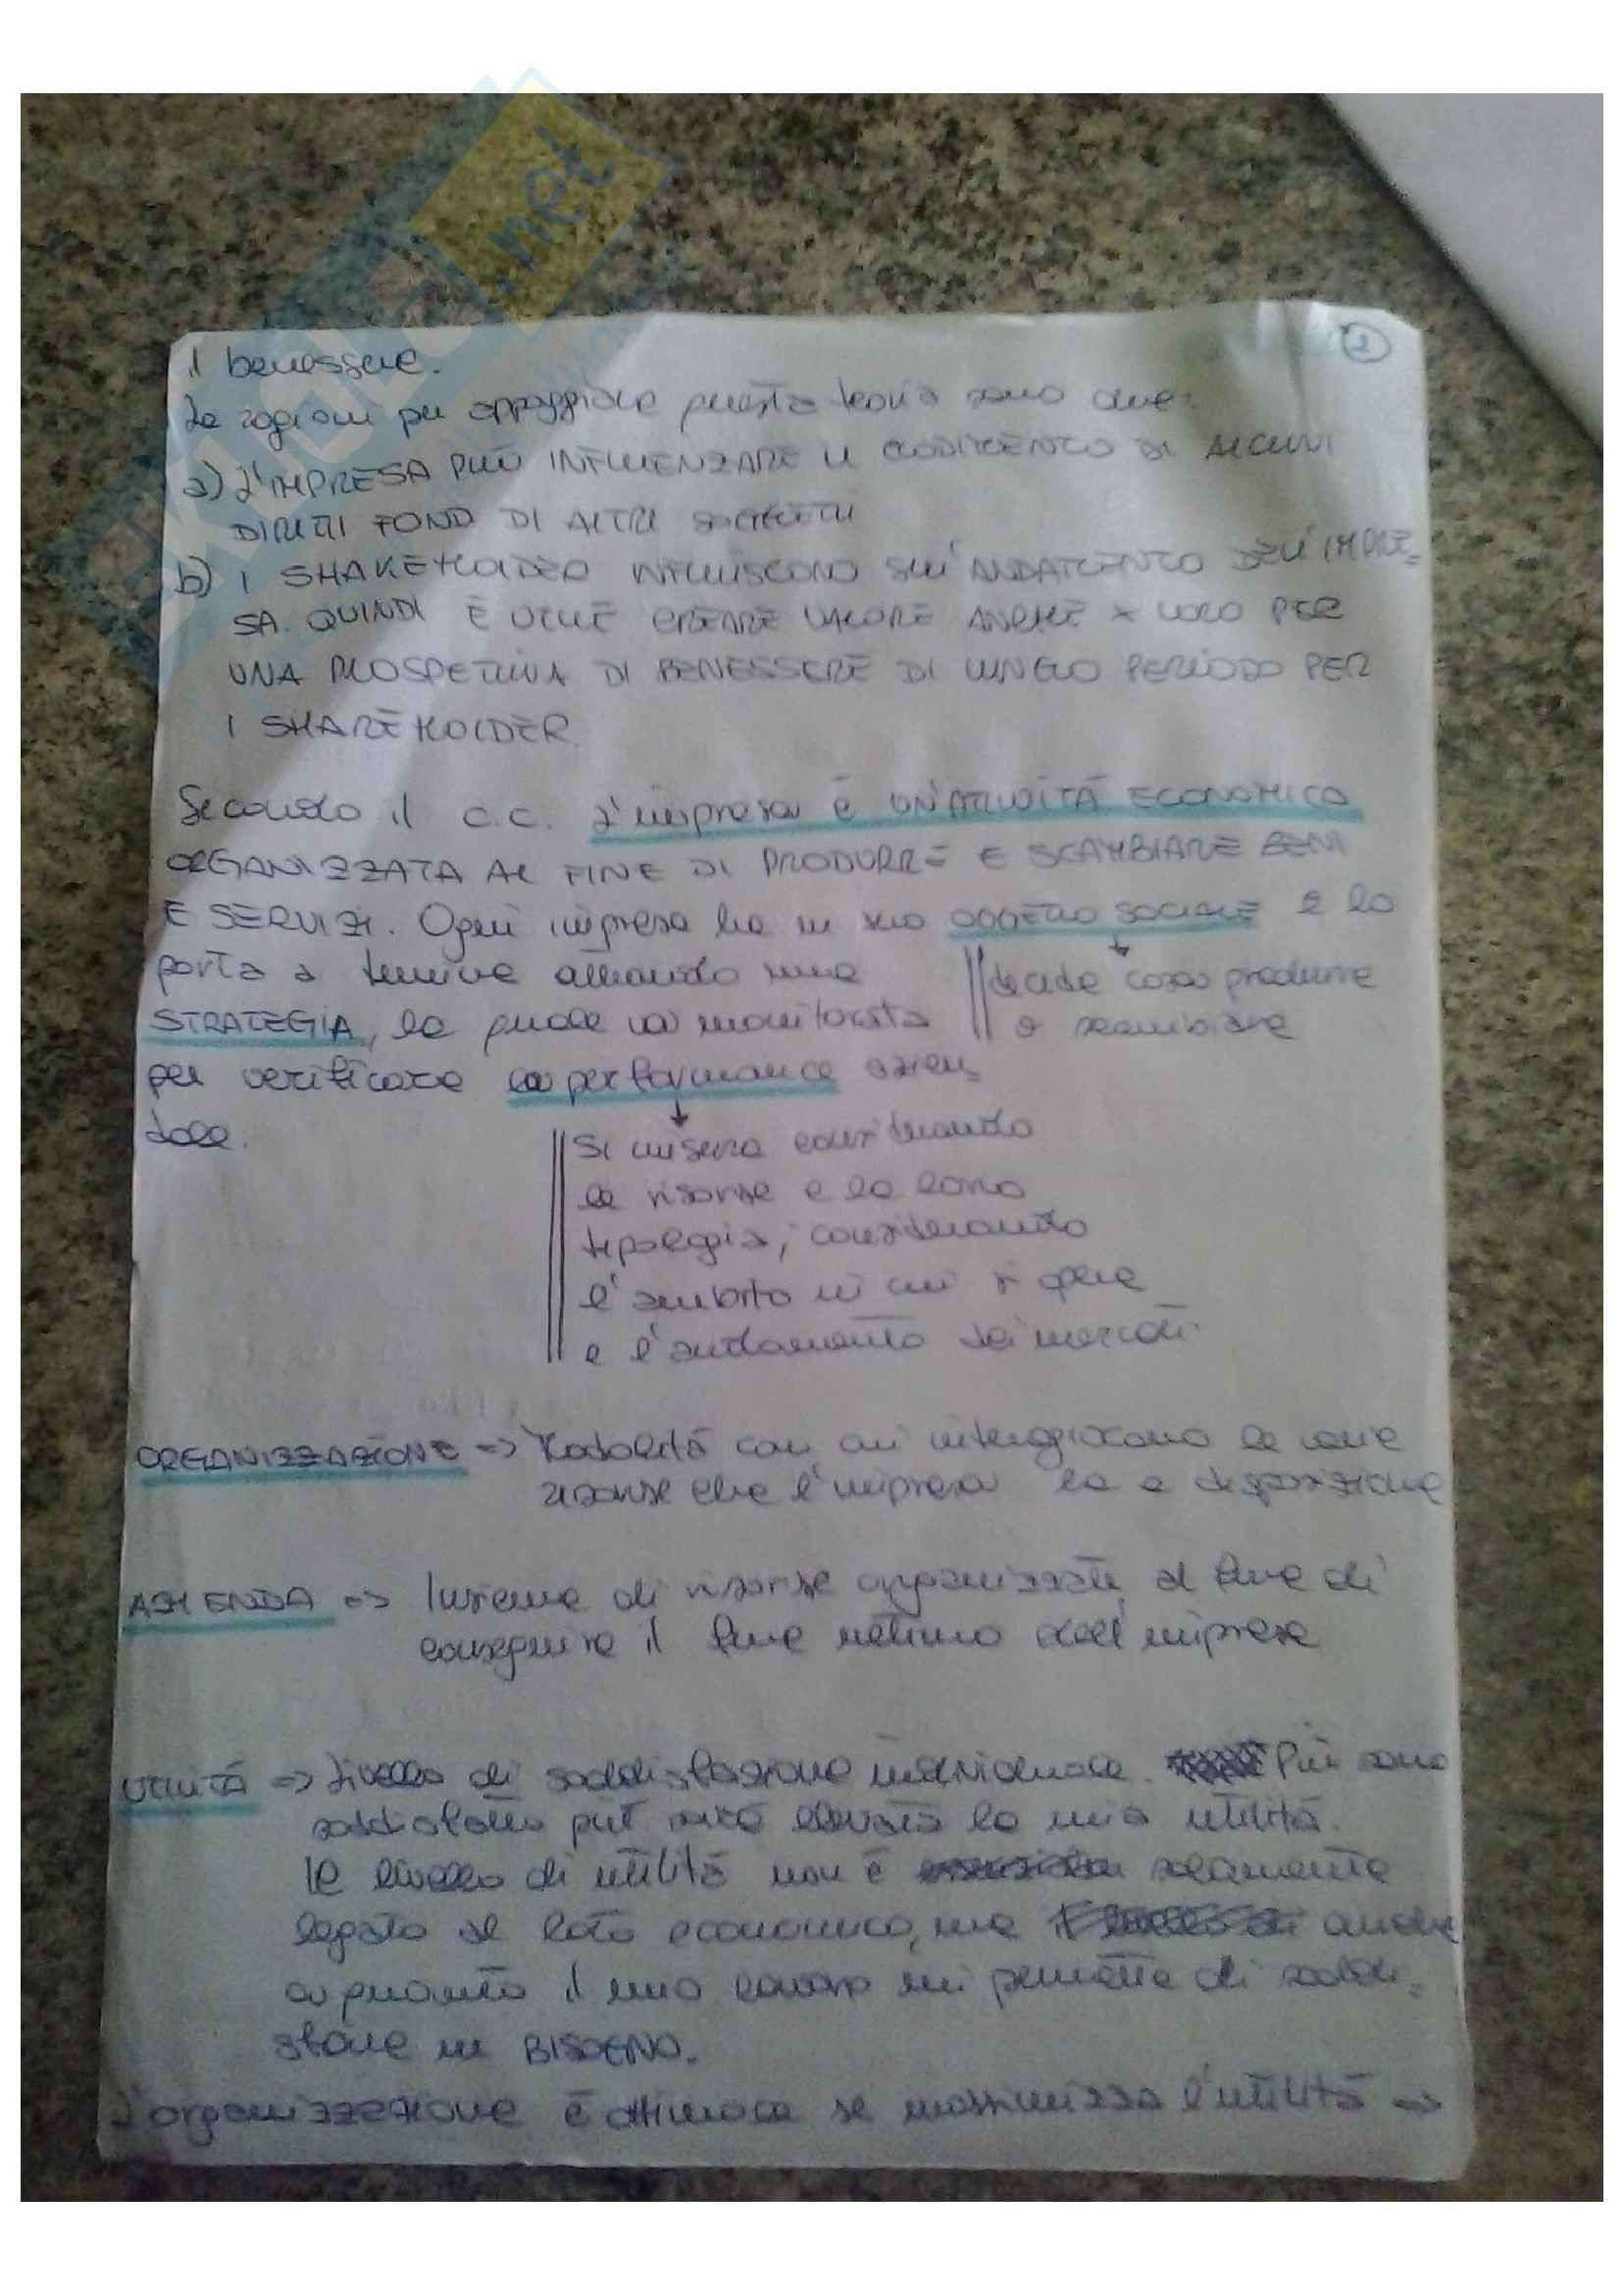 2
il benessere.
Le ragioni per appoggiare questa teoria sono due:
a) L'IMPRESA PUÒ INFLUENZARE IL GODIMENTO DI ALCUNI
DIRITTI FOND DI ALTRI SOGGETTI
b) I SHAKEHOLDER INFLUISCONO SULL'ANDAMENTO DELL'IMPRE=
SA. QUINDI È UTILE CREARE VALORE ANCHE X LORO PER
UNA PROSPETTIVA DI BENESSERE DI LUNGO PERIODO PER
I SHAREHOLDER.
Secondo il c.c. l'impresa è UN'ATTIVITÀ ECONOMICA
ORGANIZZATA AL FINE DI PRODURRE E SCAMBIARE BENI
E SERVIZI. Ogni impresa ha un suo OGGETTO SOCIALE e lo
porta a termine attuando una
decide cosa produrre
STRATEGIA, la quale va monitorata
o scambiare
per verificare la performance azien=
dale.
Si misura considerando
le risorse e la loro
tipologia, considerando
l'ambito in cui si opera
e l'andamento dei mercati.
ORGANIZZAZIONE => Modalità con cui interagiscono le varie
risorse che l'impresa ha a disposizione
AZIENDA => Insieme di risorse organizzate al fine di
conseguire il fine ultimo dell'impresa
UTILITÀ => Livello di soddisfazione individuale. Più sono
soddisfatto più sarà elevata la mia utilità.
Il livello di utilità non è solamente
legato al lato economico, ma anche
a quanto il mio lavoro mi permette di soddi=
sfare un BISOGNO.
L'organizzazione è ottimale se massimizza l'utilità =>